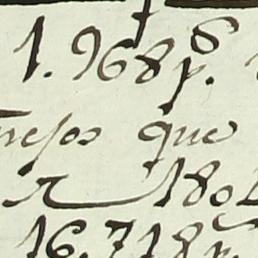 1.968 p.s
pesos que
180
16.718 p.